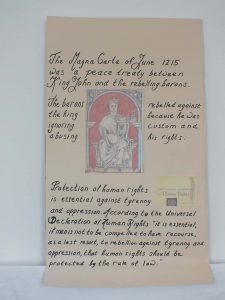 The Magna Carta of June 1215
was a peace treaty between
King John and the rebelling barons.
The barons rebelled against
the king because he was
ignoring custom and
abusing his rights.
Protection of human rights
is essential against tyranny
and oppression. According to the Universal
Declaration of Human Rights "it is essential,
if man is not to be compelled to have recourse,
as a last resort, to rebellion against tyranny and
oppression, that human rights should be
protected by the rule of law."
Human Rights